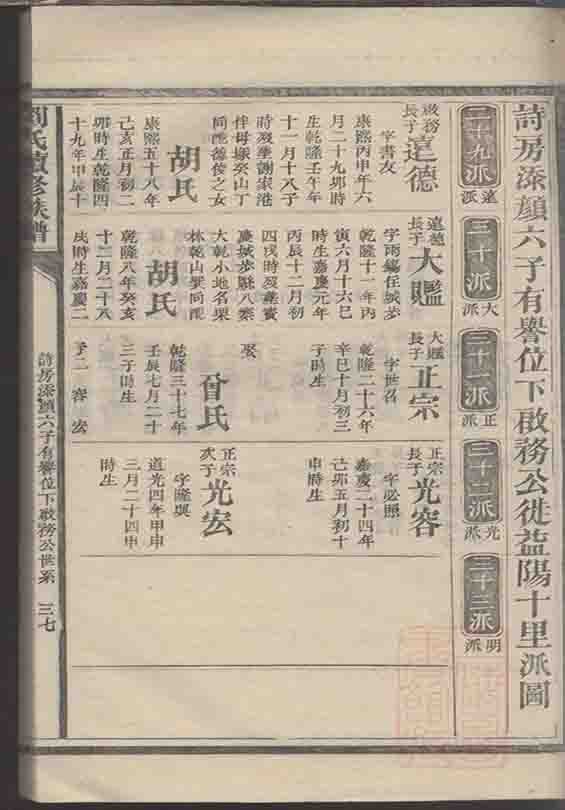 詩房添顏六子有譽位下啟務公徙益陽十里派圖
二十九派
遠派
三十派
大派
三十一派
正派
三十二派
光派
三十三派
明派
啟務
長子
遠德
字書友
康熙丙申年六
月二十九卯時
生乾隆壬午年
十一月十八子
時歿塟謝家港
伴母塚癸山丁
向配德俊之女
胡氏
康熙五十八年
己亥正月初二
卯時生乾隆四
十九年甲辰十
遠德
長子
大鑑
字雨
乾隆十一年丙
寅六月十六巳
時生嘉慶元年
丙辰十二月初
四戌時歿塟寶
慶城步縣八寨
大乾小地名栗
林乾山巽向配
胡氏
乾隆八年癸亥
十二月二十八
戌時生嘉慶二
大鑑
長子
正宗
字世召
乾隆二十六年
辛巳十月初三
子時生
娶
曾氏
乾隆三十七年
壬辰七月二十
三子時生
子二 容 宏
正宗
長子
光容
字必照
嘉慶二十四年
己卯五月初十
申時生
正宗
次子
光宏
字隆興
道光四年甲申
三月二十四申
時生
劉氏續修族譜
詩房添顏六子有譽位下啟務公世系
三七